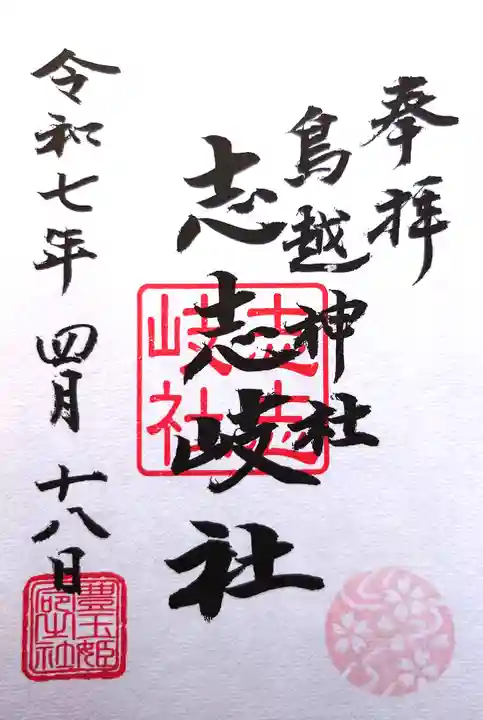 奉拝
鳥越神社
志志岐社
志志岐社
令和七年 四月 十八日
豊玉姫